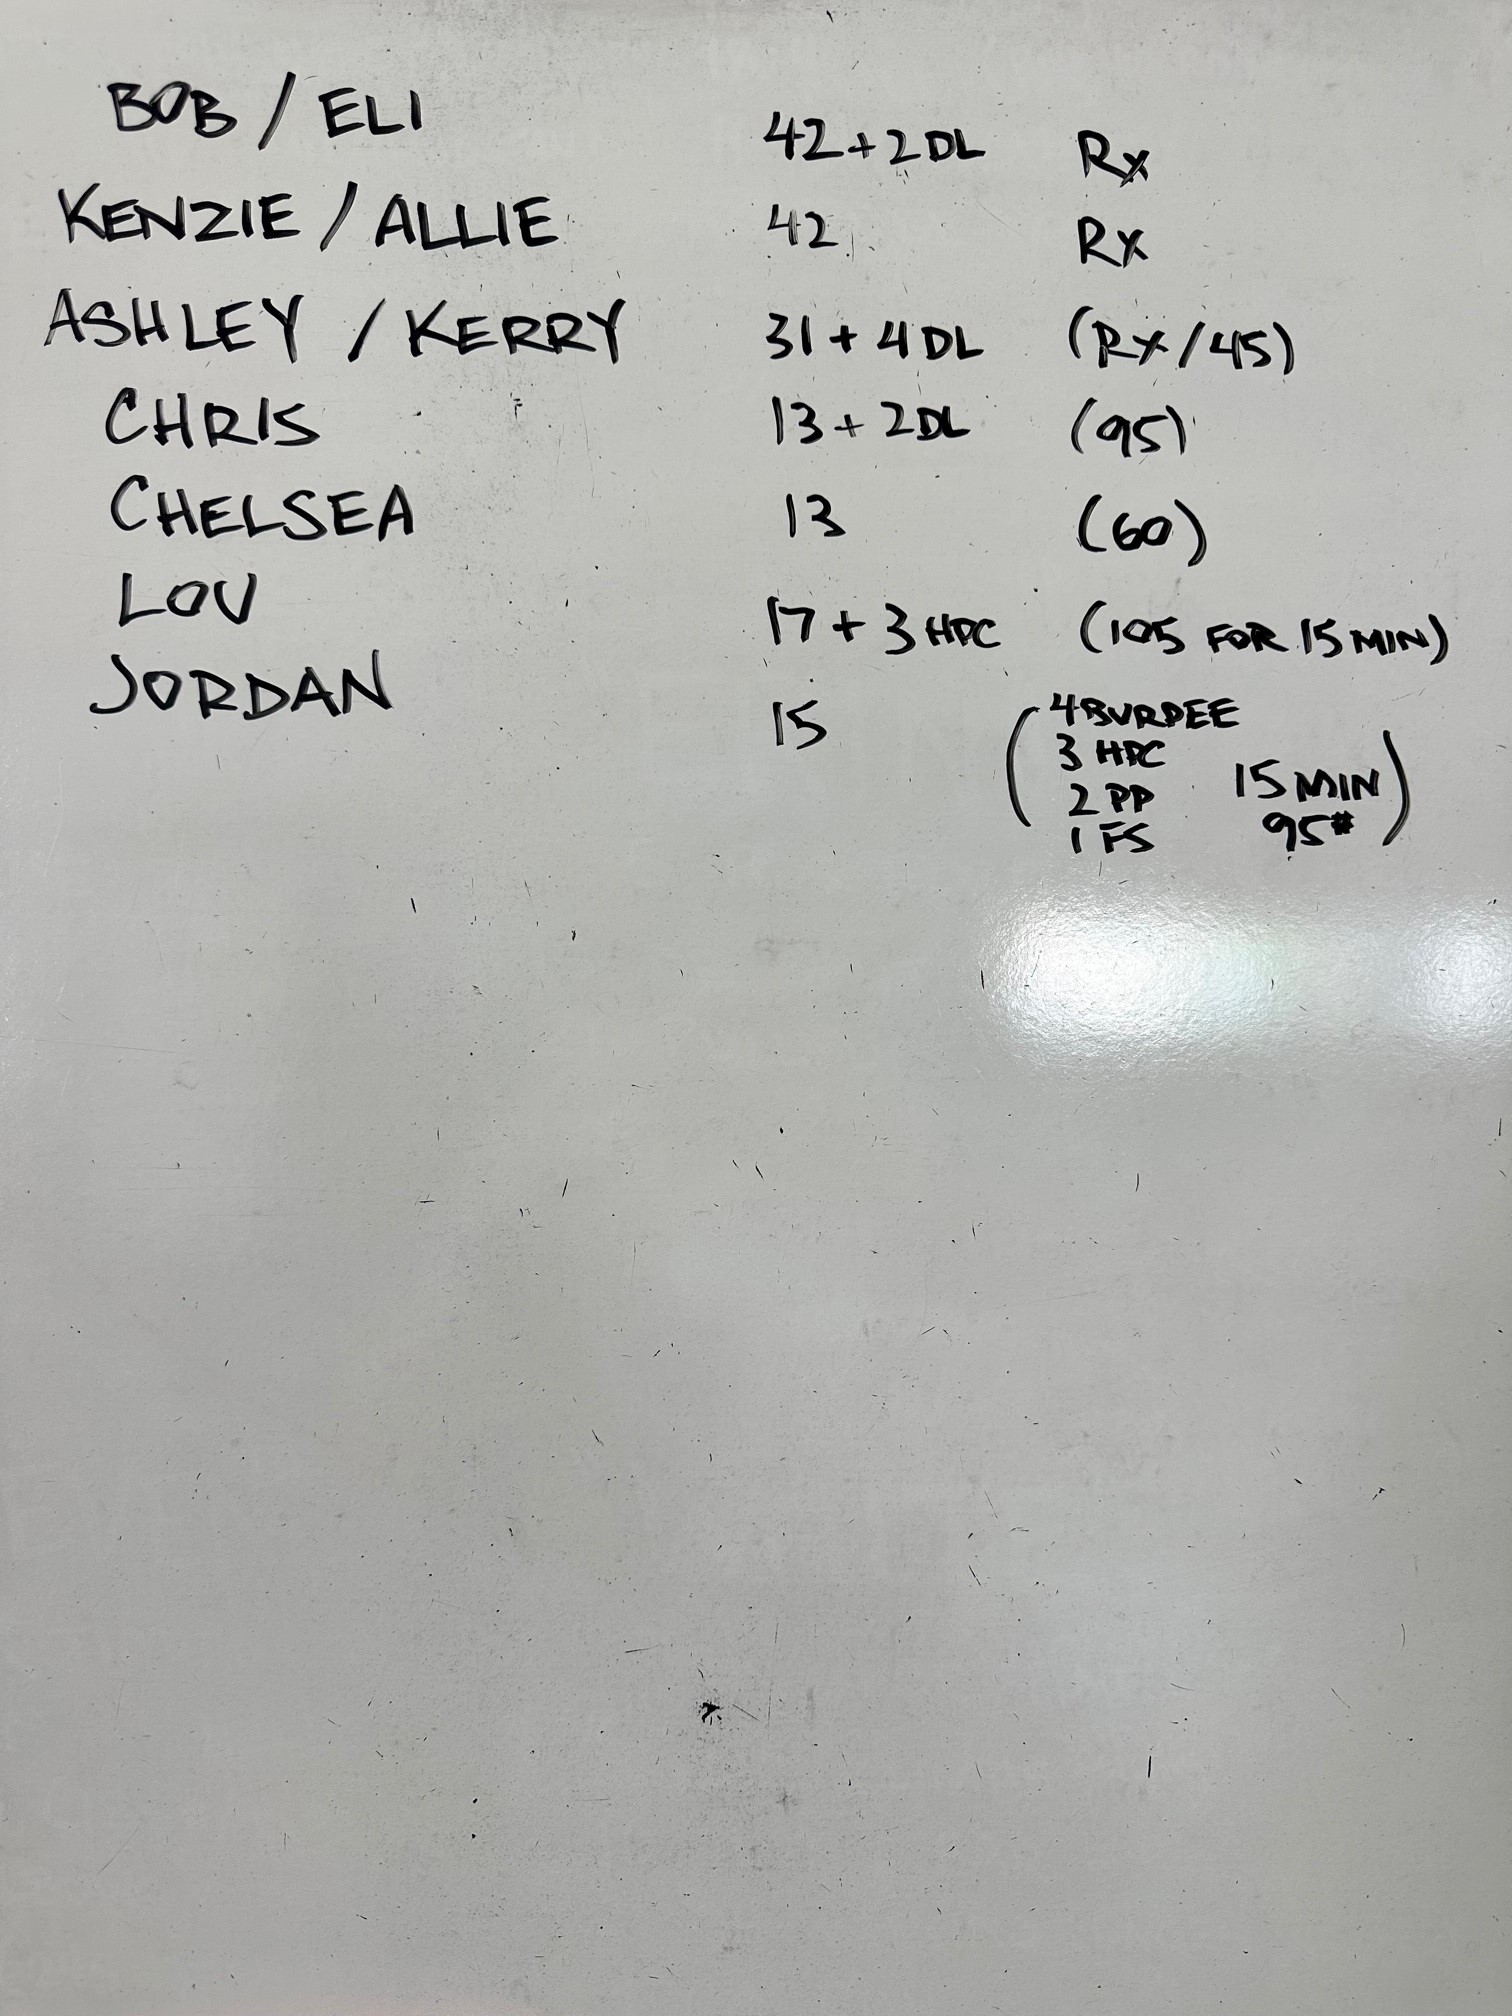 BOB / ELI 42 + 2 DL Rx
KENZIE / ALLIE 42 Rx
ASHLEY / KERRY 31 + 4 DL (Rx/45)
CHRIS 13 + 2DL (95)
CHELSEA 13 (60)
LOU 17 + 3 HPC (105 FOR 15 MIN)
JORDAN 15 (4 BURPEE
3 HPC
2 PP 15 MIN
1 FS 95#)